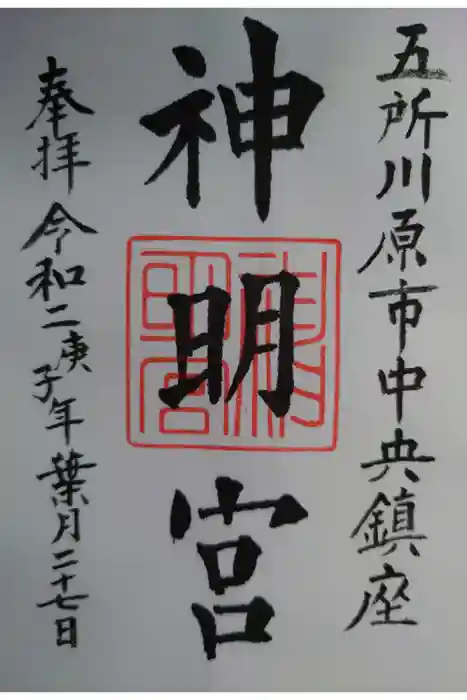 五所川原市中央鎮座
神明宮
奉拝 令和二庚子年葉月二十七日
神明宮